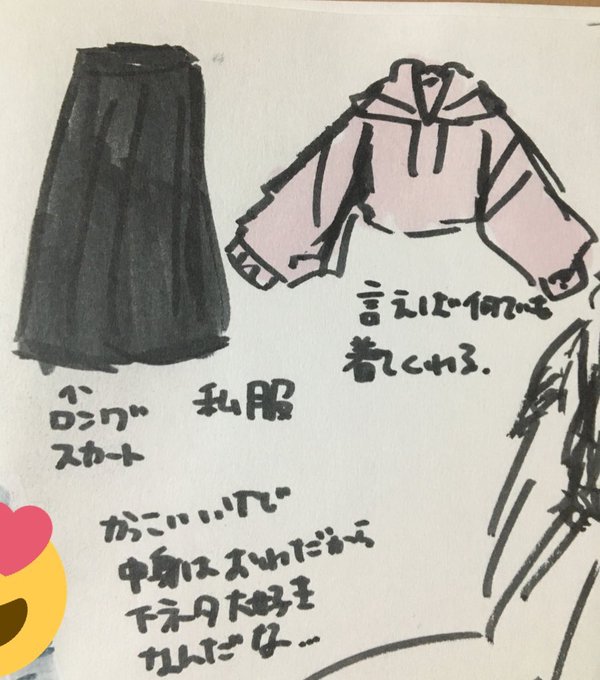 言えば何でも
着てくれる.
ロング
スカート
私服
かっこいいけど
中身はおれだから
下ネタ大好き
なんだな...